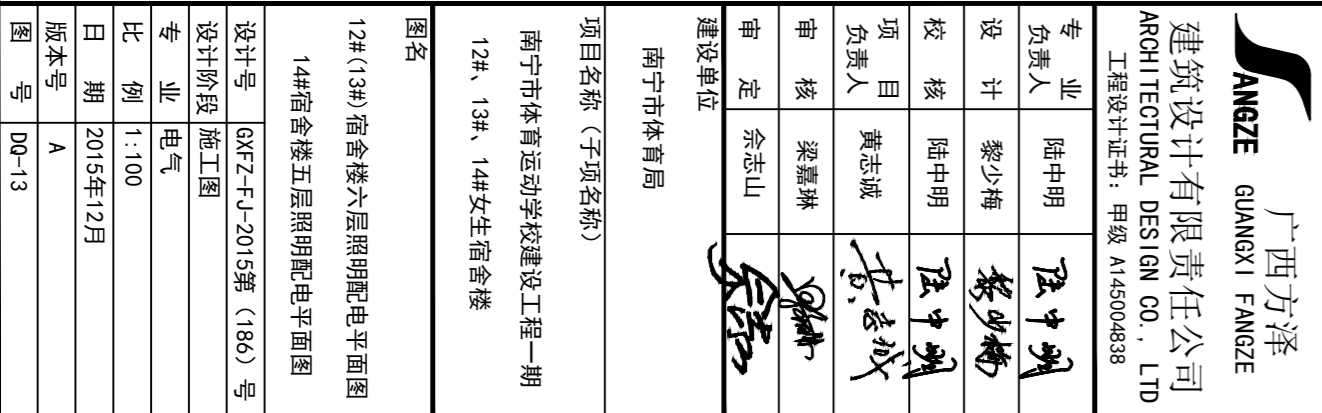 ANGZE
广西方泽
GUANGXI FANGZE
建筑设计有限责任公司
ARCHITECTURAL DESIGN CO., LTD
工程设计证书: 甲级 A145004838
专业负责人 陆中明 陆中明
设计 黎少梅 黎少梅
校核 陆中明 陆中明
项目负责人 黄志诚 黄志诚
审核 梁嘉琳
审定 佘志山
建设单位
南宁市体育局
项目名称(子项名称)
南宁市体育运动学校建设工程一期
12#、13#、14#女生宿舍楼
图名
12#(13#)宿舍楼六层照明配电平面图
14#宿舍楼五层照明配电平面图
设计号 GXFZ-FJ-2015第(186)号
设计阶段 施工图
专业 电气
比例 1:100
日期 2015年12月
版本号 A
图号 DQ-13